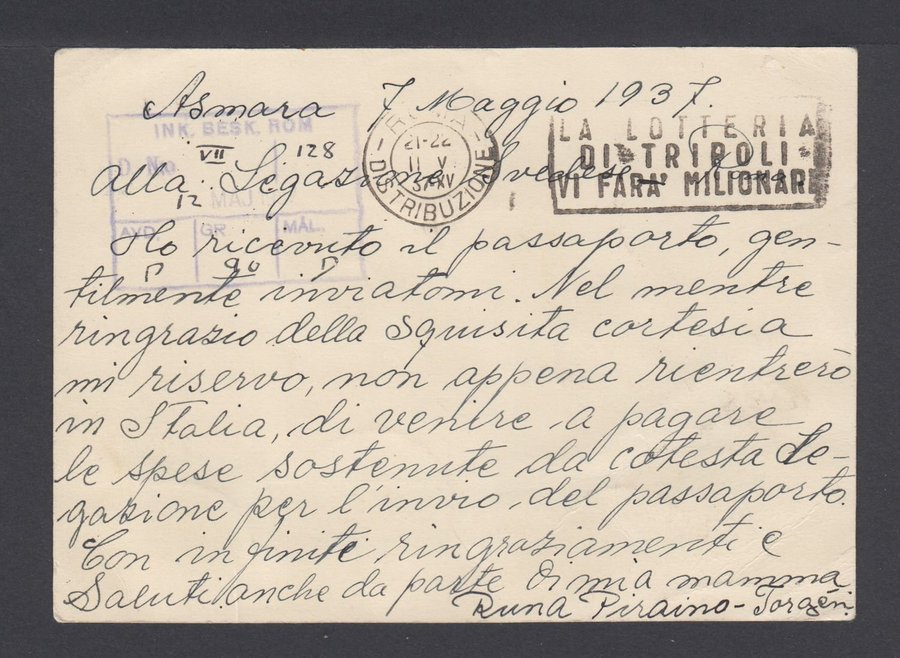 Asmara 7 Maggio 1937.
INK. BESK. ROM
D. No.
VII 128
12 MAJ
AVD. GR. MÅL.
P 90 P
ROMA
21-22
11 V
37 XV
DISTRIBUZIONE
LA LOTTERIA
DI TRIPOLI
VI FARA' MILIONARI
Alla Legazione Svedese – Roma.
Ho ricevuto il passaporto, gen-
tilmente inviatomi. Nel mentre
ringrazio della squisita cortesia
mi riservo, non appena rientrerò
in Italia, di venire a pagare
le spese sostenute da cotesta Le-
gazione per l'invio del passaporto.
Con infiniti ringraziamenti e
Saluti anche da parte di mia mamma
Runa Piraino-